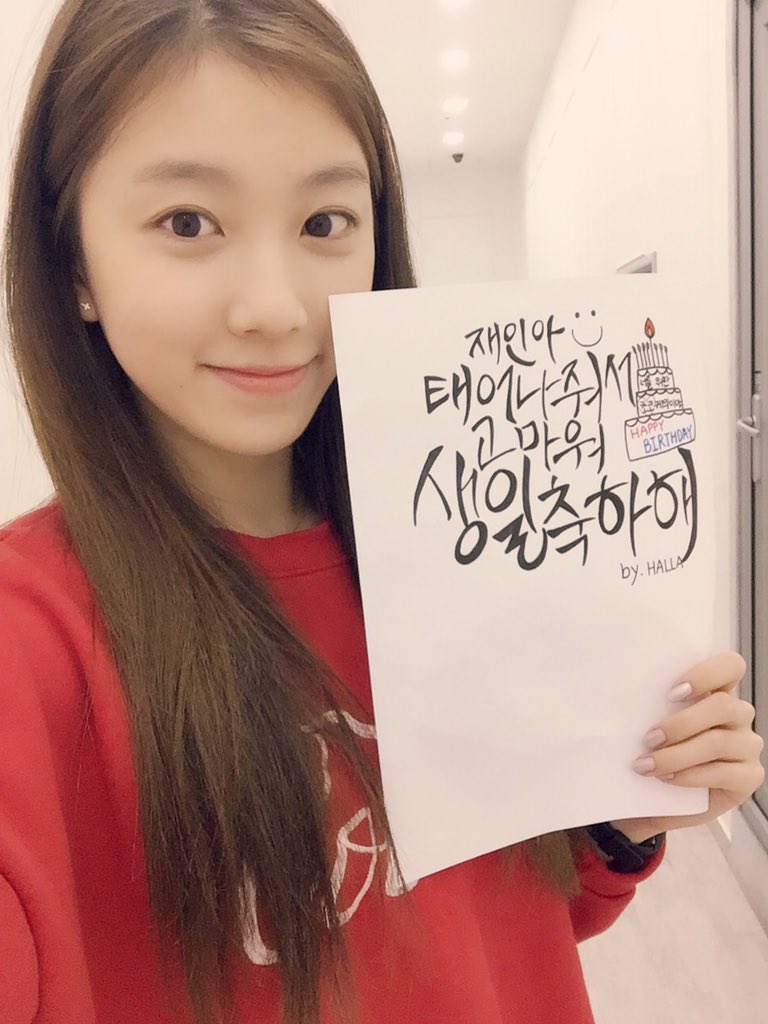 재인아
태어나줘서
고마워
생일축하해
너를 위한
HAPPY
BIRTHDAY
by. HALLA